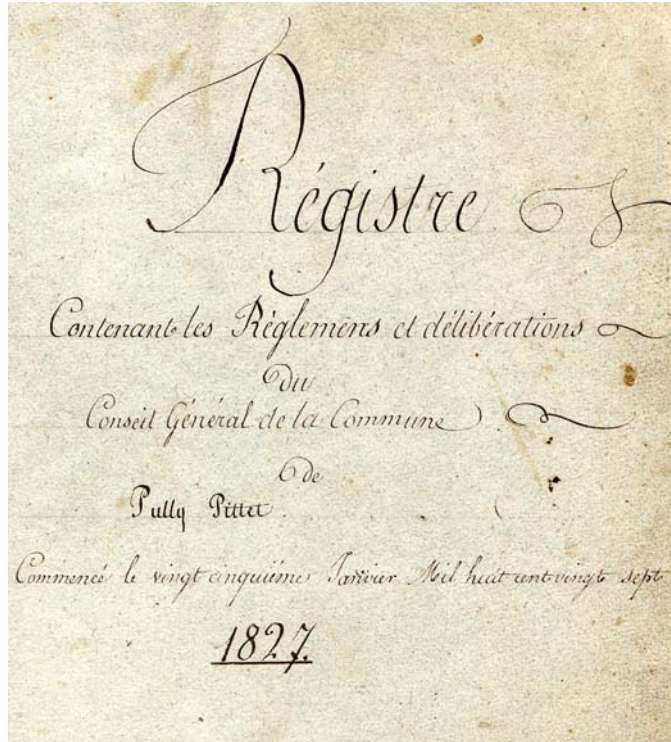 Régistre
Contenant les Réglemens et délibérations
du
Conseil Général de la Commune
de
Pully Pittet
Commencé le vingt cinquiéme Janvier Mil huit cent vingt sept
1827.